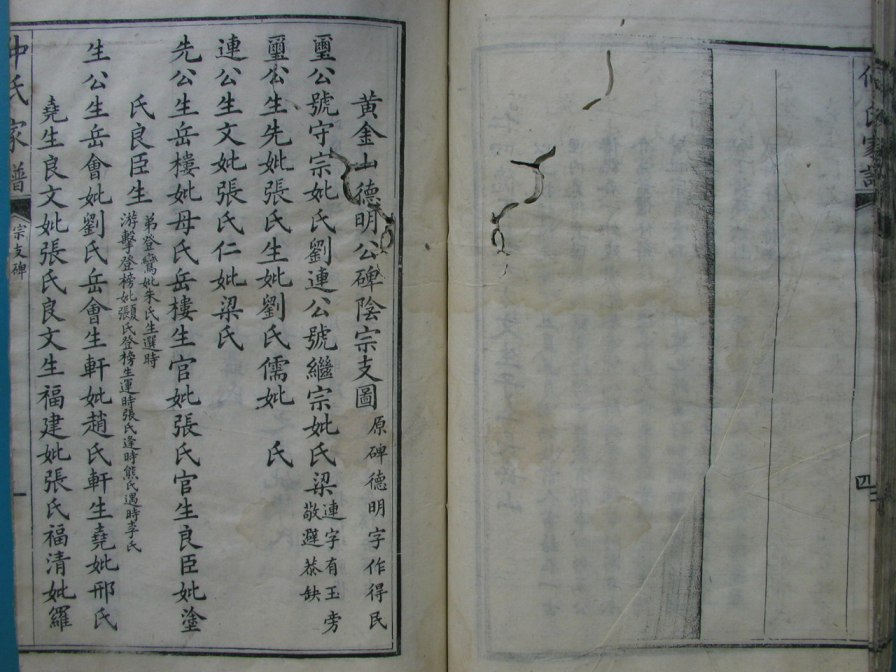 氏家譜
四
黃金山德明公碑陰宗支圖 原碑德明字作得民
璽公號守宗妣氏劉連公號繼宗妣氏梁
連字有玉旁
敬避恭缺
璽公生先妣張氏生妣劉氏儒妣　氏
連公生文妣張氏仁妣梁氏
先公生岳樓妣母氏岳樓生官妣張氏官生良臣妣塗
氏良臣生
弟登鸞妣朱氏生選時
游擊登榜妣顏氏登榜生運時張氏逢時熊氏遇時李氏
生公生岳會妣劉氏岳會生軒妣趙氏軒生堯妣邢氏
堯生良文妣張氏良文生福建妣張氏福清妣羅
氏家譜
宗支碑
一